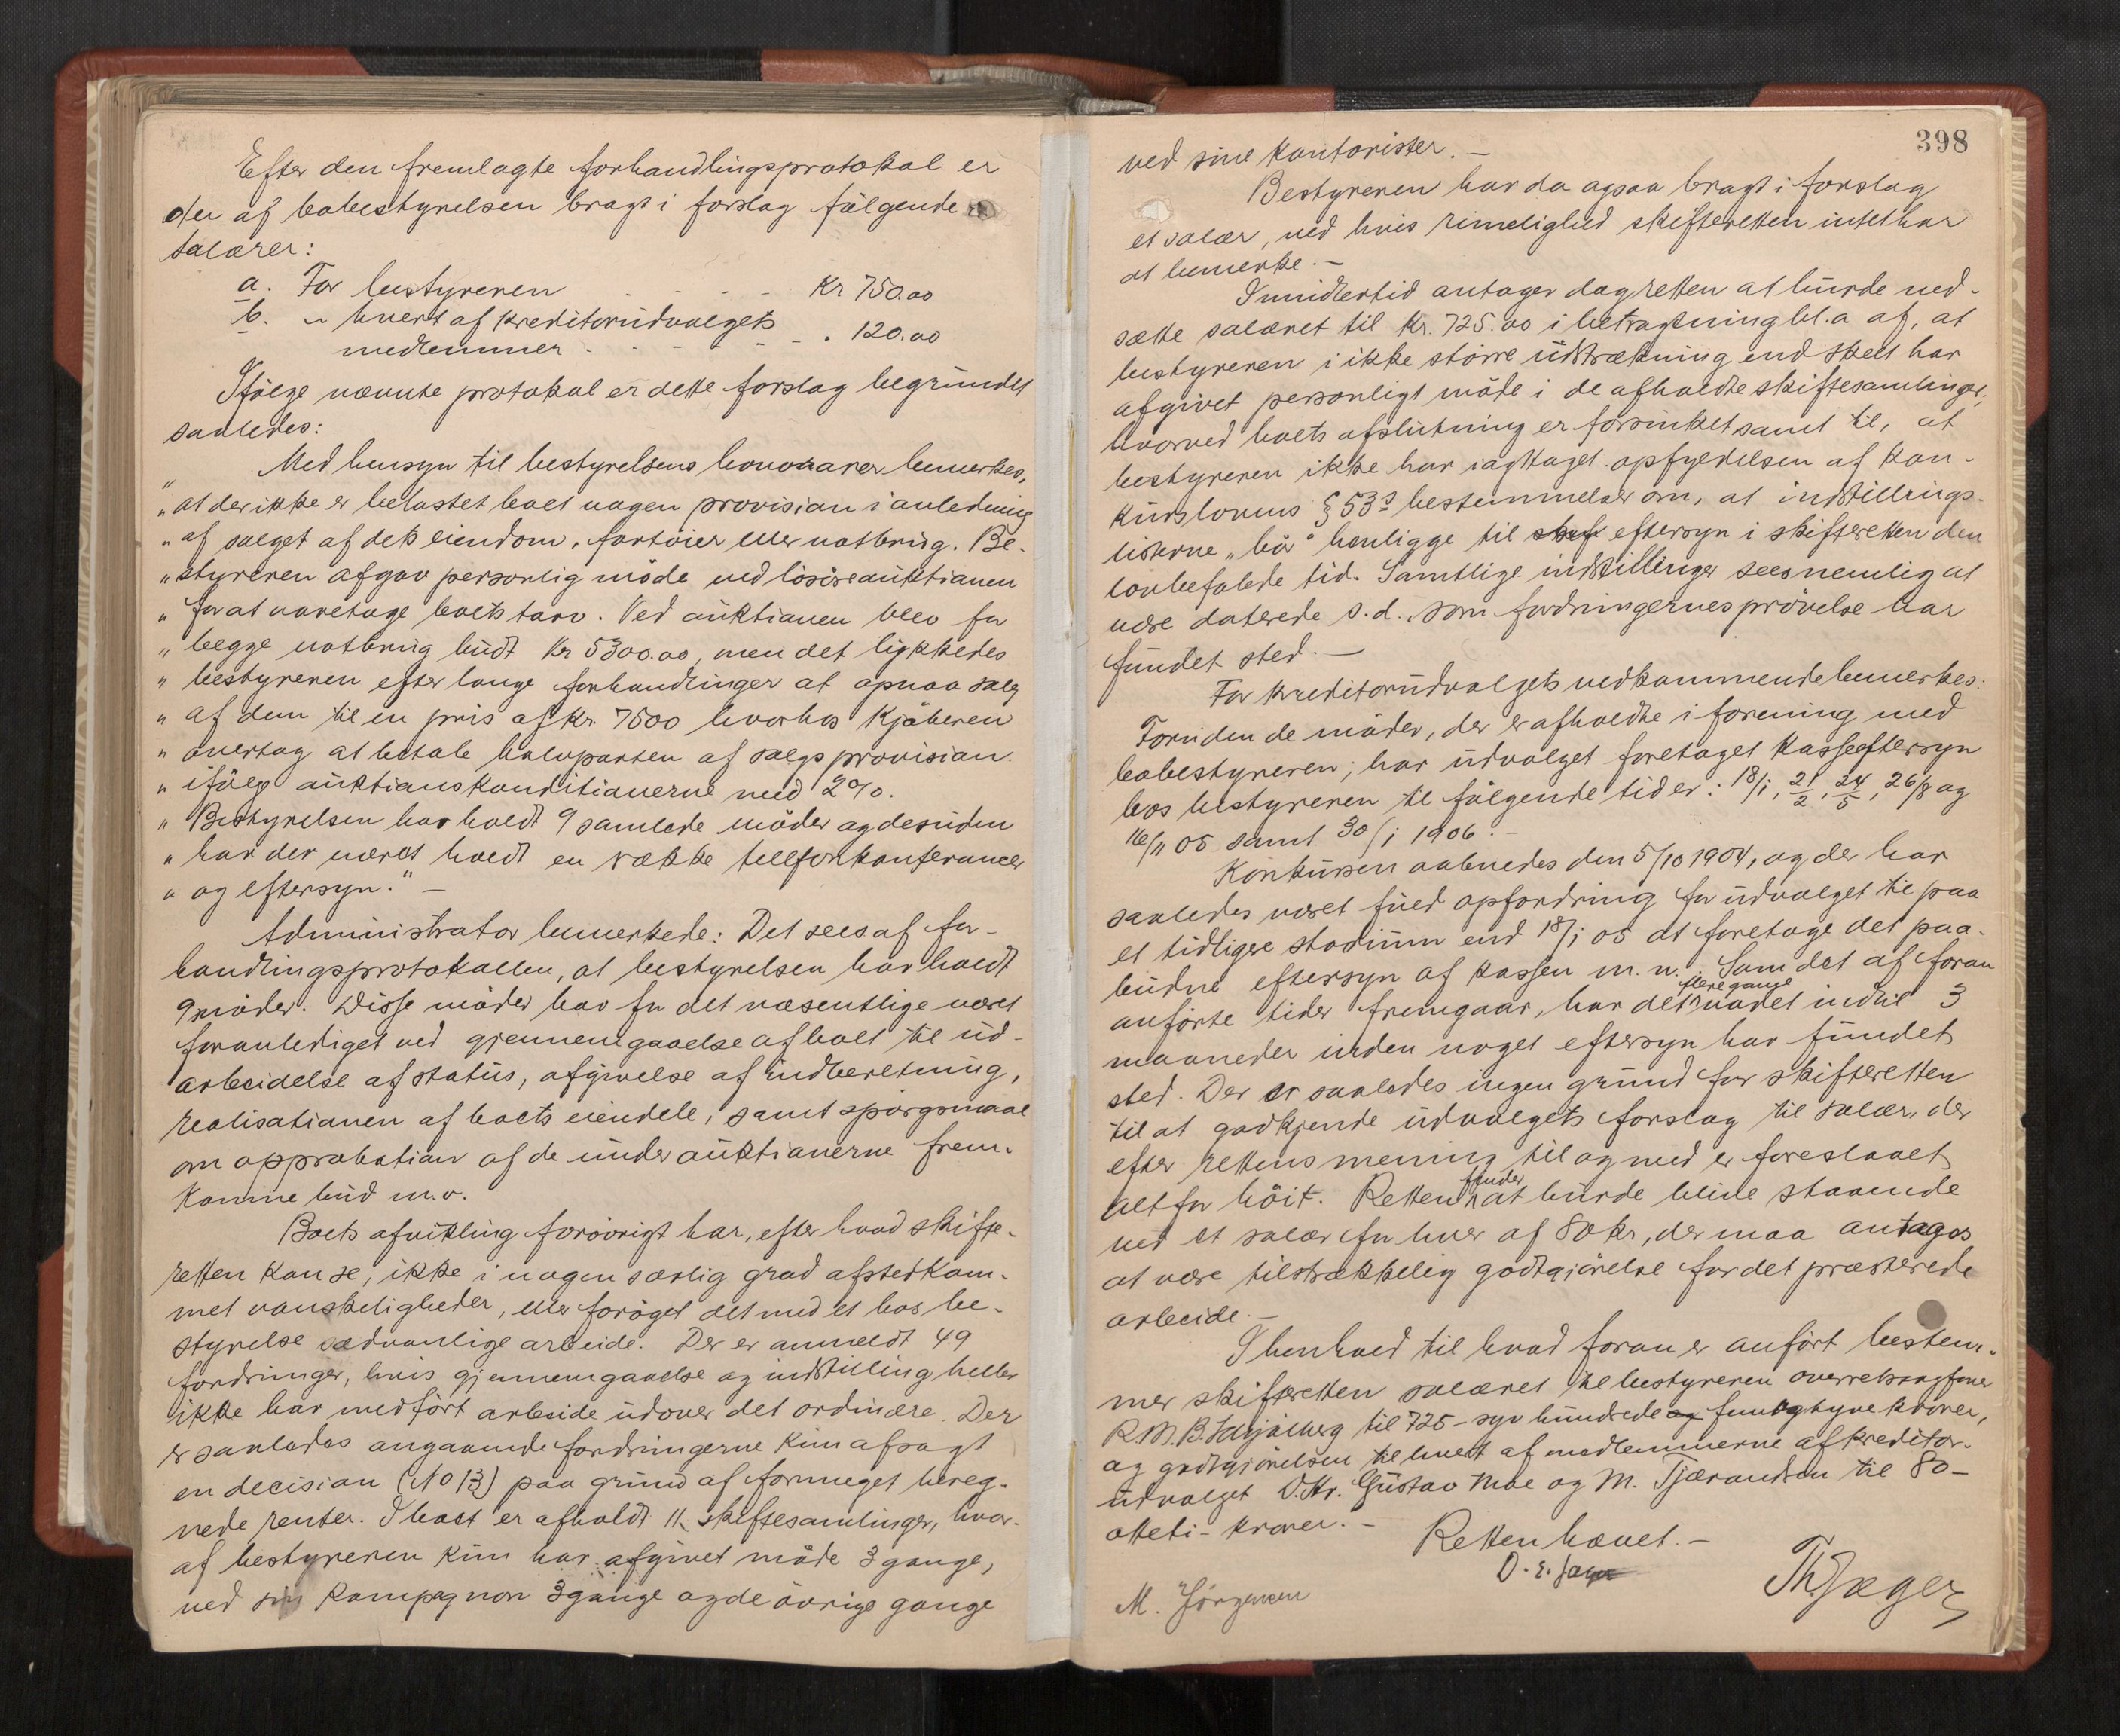 Efter den fremlagte forhandlingsprotokol er
der af bobestyrelsen bragt i forslag følgende
salærer:
a. For bestyreren . . . . Kr 750.00
b. " hvert af kreditorudvalgets
medlemmer . . . . . . 120.00
Ifølge nævnte protokol er dette forslag begrundet
saaledes:
" Med hensyn til bestyrelsens honorarer bemerkes,
" at der ikke er belastet boet nogen provision i anledning
" af salget af dets eiendom, fartøier eller notbrug. Be-
" styreren afgav personlig møde ved løsøreauktionen
" for at varetage boets tarv. Ved auktionen blev for
" begge notbrug budt Kr 5300.00, men det lykkedes
" bestyreren efter lange forhandlinger at opnaa salg
" af dem til en pris af kr. 7500 hvorhos kjøberen
" overtog at betale halvparten af salgsprovision
" ifølge auktionskonditionerne med 2%.
" Bestyrelsen har holdt 9 samlede møder og desuden
" har der været holdt en række telefonkonferancer
" og eftersyn." —
Administrator bemerkede: Det sees af for-
handlingsprotokollen, at bestyrelsen har holdt
9 møder. Disse møder har for det væsentlige været
foranlediget ved gjennemgaaelse af boet til ud-
arbeidelse af status, afgivelse af indberetning,
realisationen af boets eiendele, samt spørgsmaal
om approbation af de under auktionerne frem-
komne bud m.v.
Boets afvikling forøvrigt har, efter hvad skifte-
retten kan se, ikke i nogen særlig grad afstedkom-
met vanskeligheder, eller forøget det med et bos be-
styrelse sædvanlige arbeide. Der er anmeldt 49
fordringer, hvis gjennemgaaelse og indstilling heller
ikke har medført arbeide udover det ordinære. Der
er saaledes angaaende fordringerne kun afsagt
en decision (No 13) paa grund af formeget bereg-
nede renter. I boet er afholdt 11 skiftesamlinger, hvor-
af bestyreren kun har afgivet møde 3 gange,
ved sin kompagnon 3 gange og de øvrige gange
398
ved sine kontorister. —
Bestyreren har da ogsaa bragt i forslag
et salær, ved hvis rimelighed skifteretten intet har
at bemerke. —
Imidlertid antager dog retten at burde ned-
sætte salæret til Kr. 725.00 i betragtning bl.a af, at
bestyreren i ikke større udstrækning end skeet har
afgivet personligt møde i de afholdte skiftesamlinger,
hvorved boets afslutning er forsinket samt til, at
bestyreren ikke har iagttaget opfyldelsen af kon-
kurslovens § 53s bestemmelser om, at indstillings-
listerne "bør" henligge til eftersyn i skifteretten den
lovbefalede tid. Samtlige indstillinger sees nemlig at
være daterede s.d. som fordringernes prøvelse har
fundet sted. —
For kreditorudvalgets vedkommende bemerkes:
Foruden de møder, der er afholdte i forening med
bobestyreren, har udvalget foretaget kasseeftersyn
hos bestyreren til følgende tider: 18/1, 21/2, 24/5, 26/8 og
16/11 05 samt 30/1 1906. —
Konkursen aabnedes den 5/10 1904, og der har
saaledes været fuld opfordring for udvalget til paa
et tidligere stadium end 18/1 05 at foretage det paa-
budne eftersyn af kassen m. v. Som det af foran
anførte tider fremgaar, har det flere gange varet indtil 3
maaneder inden noget eftersyn har fundet
sted. Der er saaledes ingen grund for skifteretten
til at godkjende udvalgets forslag til salær, der
efter rettens mening til og med er foreslaaet
alt for høit. Retten finder at burde blive staaende
ved et salær for hver af 80 kr, der maa antages
at være tilstrækkelig godtgjørelse for det præsterede
arbeide. —
I henhold til hvad foran er anført bestem-
mer skifteretten salæret til bestyreren overretssagfører
R. M. B. Schjølberg til 725 – syv hundrede og fem og tyve kroner,
og godtgjørelsen til hvert af medlemmerne af kreditor-
udvalget D. Hr. Gustav Moe og M. Tjærandsen til 80 –
otteti – kroner. —
Retten hævet. —
M. Jörgensen
Th. Jæger